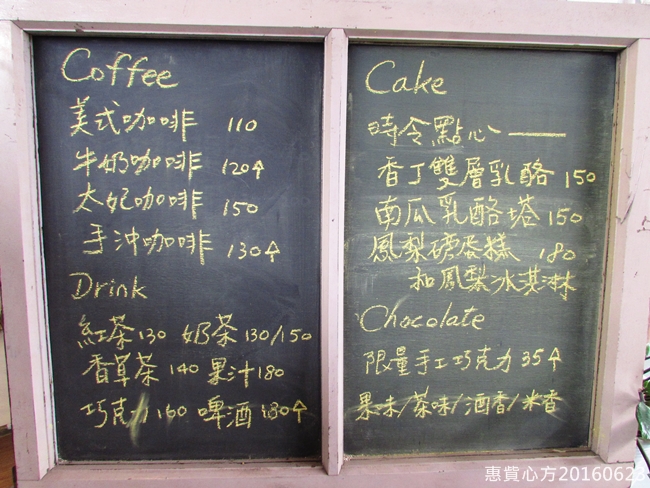 Coffee
美式咖啡 110
牛奶咖啡 120↑
太妃咖啡 150
手沖咖啡 130↑
Drink
紅茶 130 奶茶 130/150
香草茶 140 果汁 180
巧克力 160 啤酒 180↑
Cake
時令點心——
香丁雙層乳酪 150
南瓜乳酪塔 150
鳳梨磅蛋糕 180
和鳳梨冰淇淋
Chocolate
限量手工巧克力 35↑
果味/茶味/酒香/米香
惠賞心方20160623